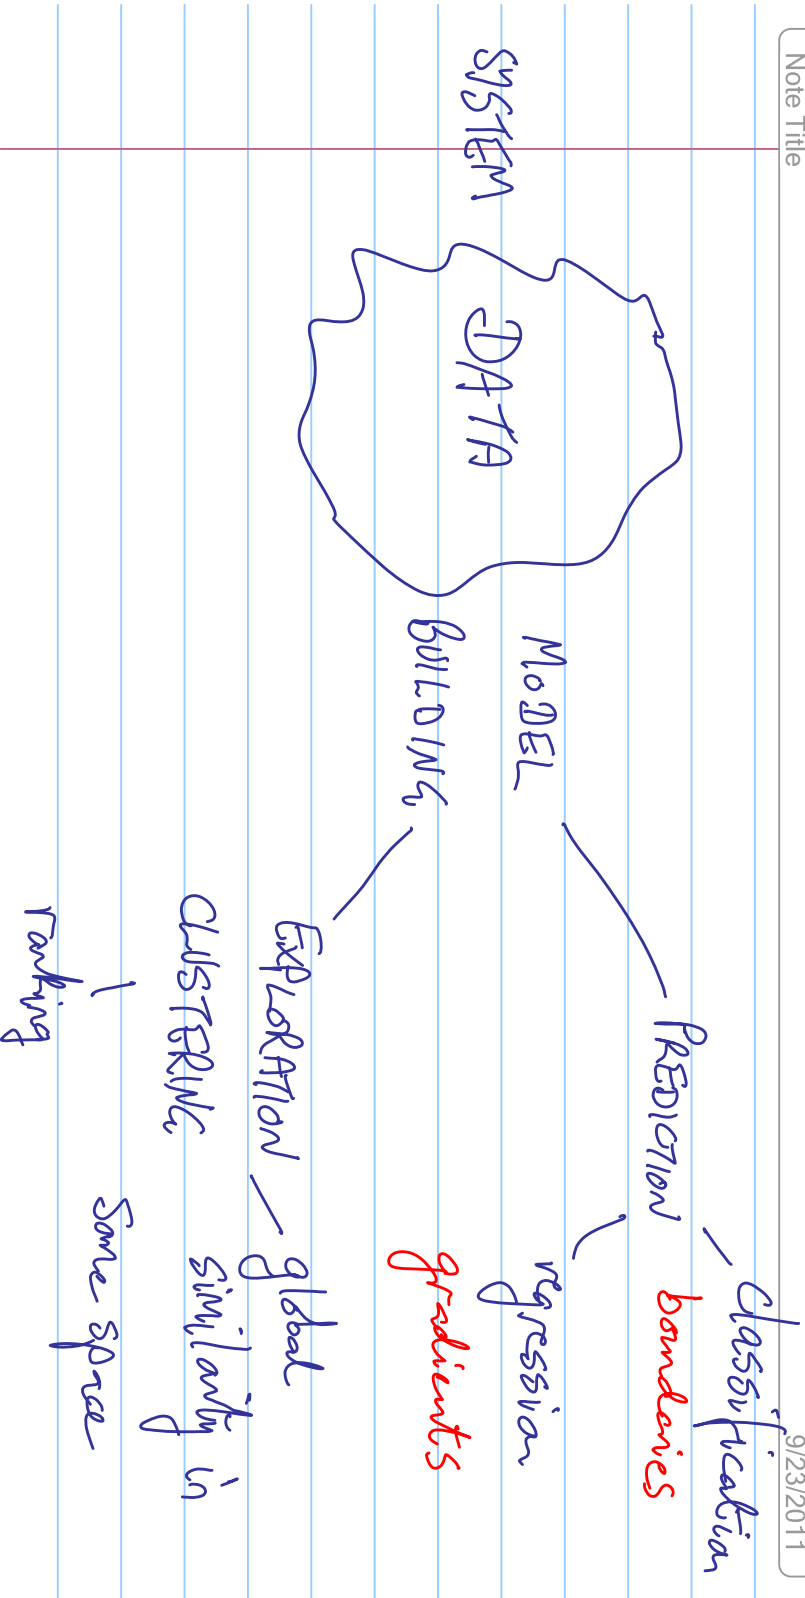 Note Title
9/23/2011
SYSTEM
DATA
MODEL
BUILDING
PREDICTION
Classification
boundaries
regression
gradients
EXPLORATION
global
similarity in
Some space
CLUSTERING
ranking